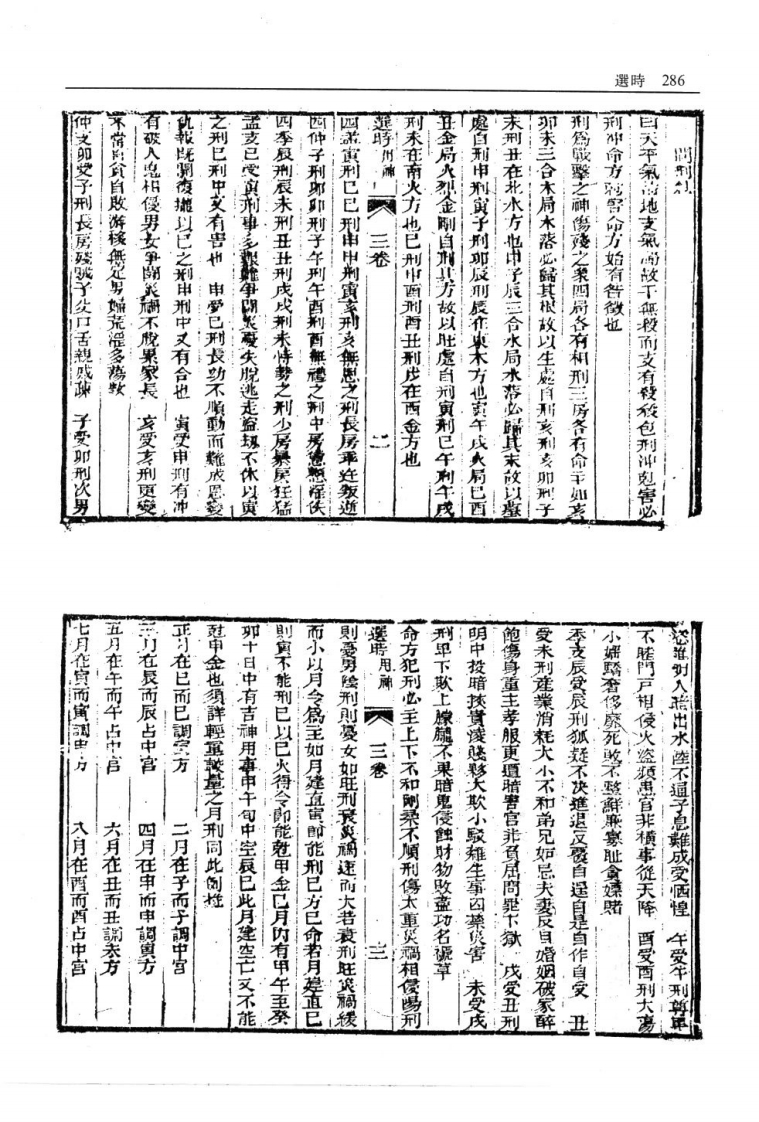 選時 286
曰天干氣　地支氣　故干無殺而支有殺殺包刑沖剋害必
刑沖命方　害命方始有咎徵也
刑爲戰擊之神傷殘之象四局各有相刑三房各有命主如亥
卯未三合木局木落必歸其根故以生處自刑亥刑亥卯刑子
未刑丑在北水方也申子辰三合水局水落必歸其末故以墓
處自刑申刑寅子刑卯辰刑辰在東木方也寅午戌火局巳酉
丑金局火烈金剛自刑其方故以旺處自刑寅刑巳午刑午戌
刑未在南火方也巳刑申酉刑酉丑刑戌在西金方也
選時用神　三卷　二
四孟寅刑巳巳刑申申刑寅亥刑亥無恩之刑長房乖迕叛逆
四仲子刑卯卯刑子午刑午酉刑酉無禮之刑中房　淫佚
四季辰刑辰未刑丑丑刑戌戌刑未恃勢之刑少房暴戾狂猛
孟亥巳受寅刑事多艱難爭鬪災憂失脫逃走盜刼不休以寅
之刑巳刑中又有害也　申受巳刑長幼不順動而難成恩變
仇報既　復　以巳之刑申刑中又有合也　寅受申刑有沖
有破人鬼相侵男女爭鬪災禍不脫累家長　亥受亥刑更變
不常自貧自敗游移無定男婦荒淫多蕩
仲支卯受子刑長房殘　子父口舌親戚疎　子受卯刑次男
　人　出水陸不通子息難成受恓惶　午受午刑尊卑
不睦門戶相侵火盜頻患官非橫事從天降　酉受酉刑大蕩
小婦驕奢侈靡死敗不　鮮廉寡耻貪嫖賭
季支辰受辰刑狐疑不決進退反覆自逞自是自作自受　丑
受未刑產業消耗大小不和弟兄如忌夫妻反目婚姻破家醉
飽傷身重主孝服更遭暗害官非　屈問罪下獄　戌受丑刑
明中投暗挾貴凌賤夥大欺小駁雜生事囚　災害　未受戌
刑卑下欺上朦朧不果暗鬼侵蝕財物敗蓋功名褫革
命方犯刑必主上下不和剛柔不順刑傷太重災禍相侵陽刑
選時用神　三卷　三
則憂男陰刑則憂女如旺刑衰災禍速而大若衰刑旺災禍緩
而小以月令爲主如月建直寅即能刑巳方巳命若月建直巳
則寅不能刑巳以巳火得令即能尅申金巳月內有甲午至癸
卯十日中有吉神用事申午旬中空辰巳此月建空亡又不能
尅申金也須詳輕重談量之月刑同此例推
正月在巳而巳調　方　二月在子而子調中宮
三月在辰而辰占中宮　四月在申而申調寅方
五月在午而午占中宮　六月在丑而丑調未方
七月在寅而寅調申方　八月在酉而酉占中宮